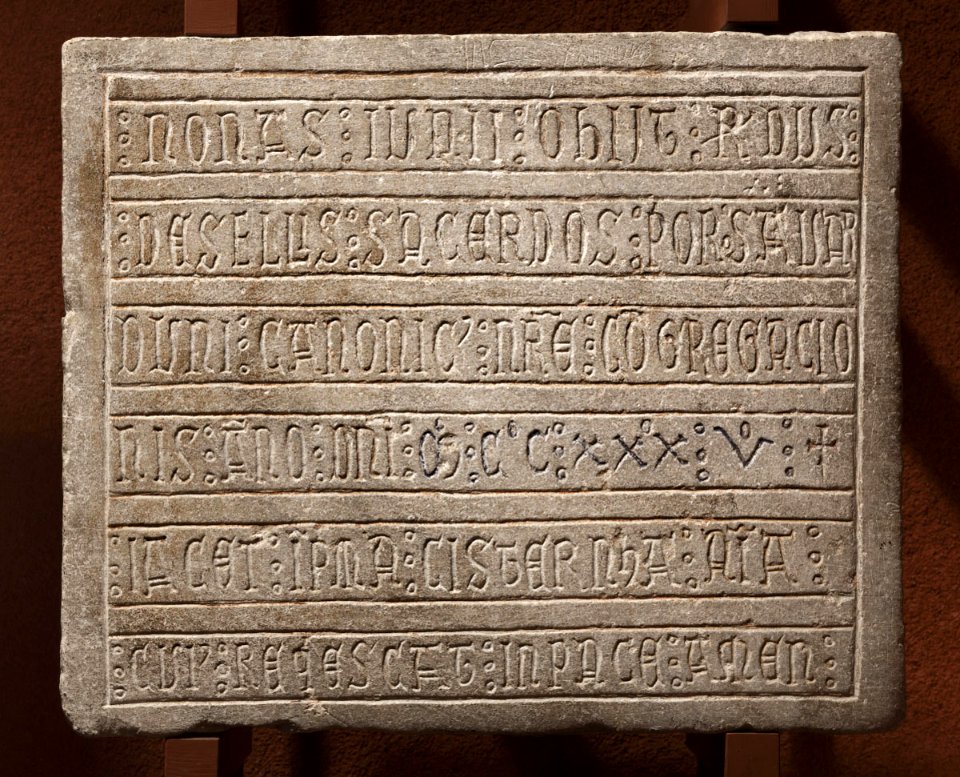 NONAS : IUNII : OBIIT : RDUS :
: DESELLS : SACERDOS : PORST : LAR
DUNI : CANONIC' : NRE : CO GREGACIO
NIS : ANO : MI : C C : XXX V : +
: IACET : IPMA : CISTERNHA : AIA :
: CUI' : REQESCAT : IN PACE : AMEN :